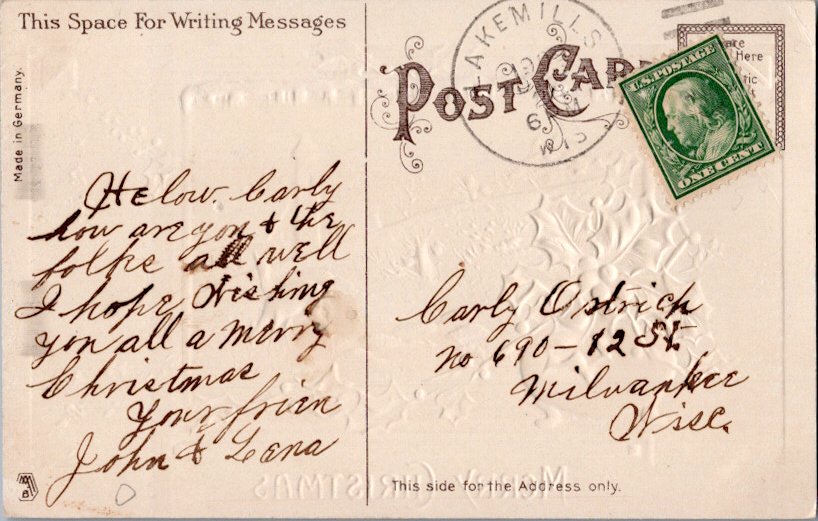 This Space For Writing Messages
Made in Germany.
Helow. Carly
how are you & the
folke all well
I hope Wishing
you all a merry
Christmas
Your frien
John & Lena
POST CARD
LAKE MILLS
WIS
6
U.S. POSTAGE
ONE CENT
Here
Carly Ostrich
no 690-12 St.
Milwaukee
Wisc.
MERRY CHRISTMAS
This side for the Address only.